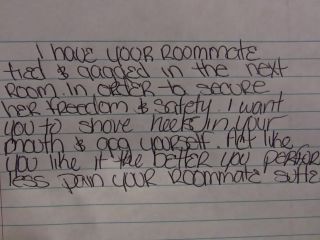 I have your roommate
tied & gagged in the next
room. In order to secure
her freedom & safety. I want
you to shove heels in your
mouth & gag yourself. Act like
you like it the better you perform
less pain your roommate suffe